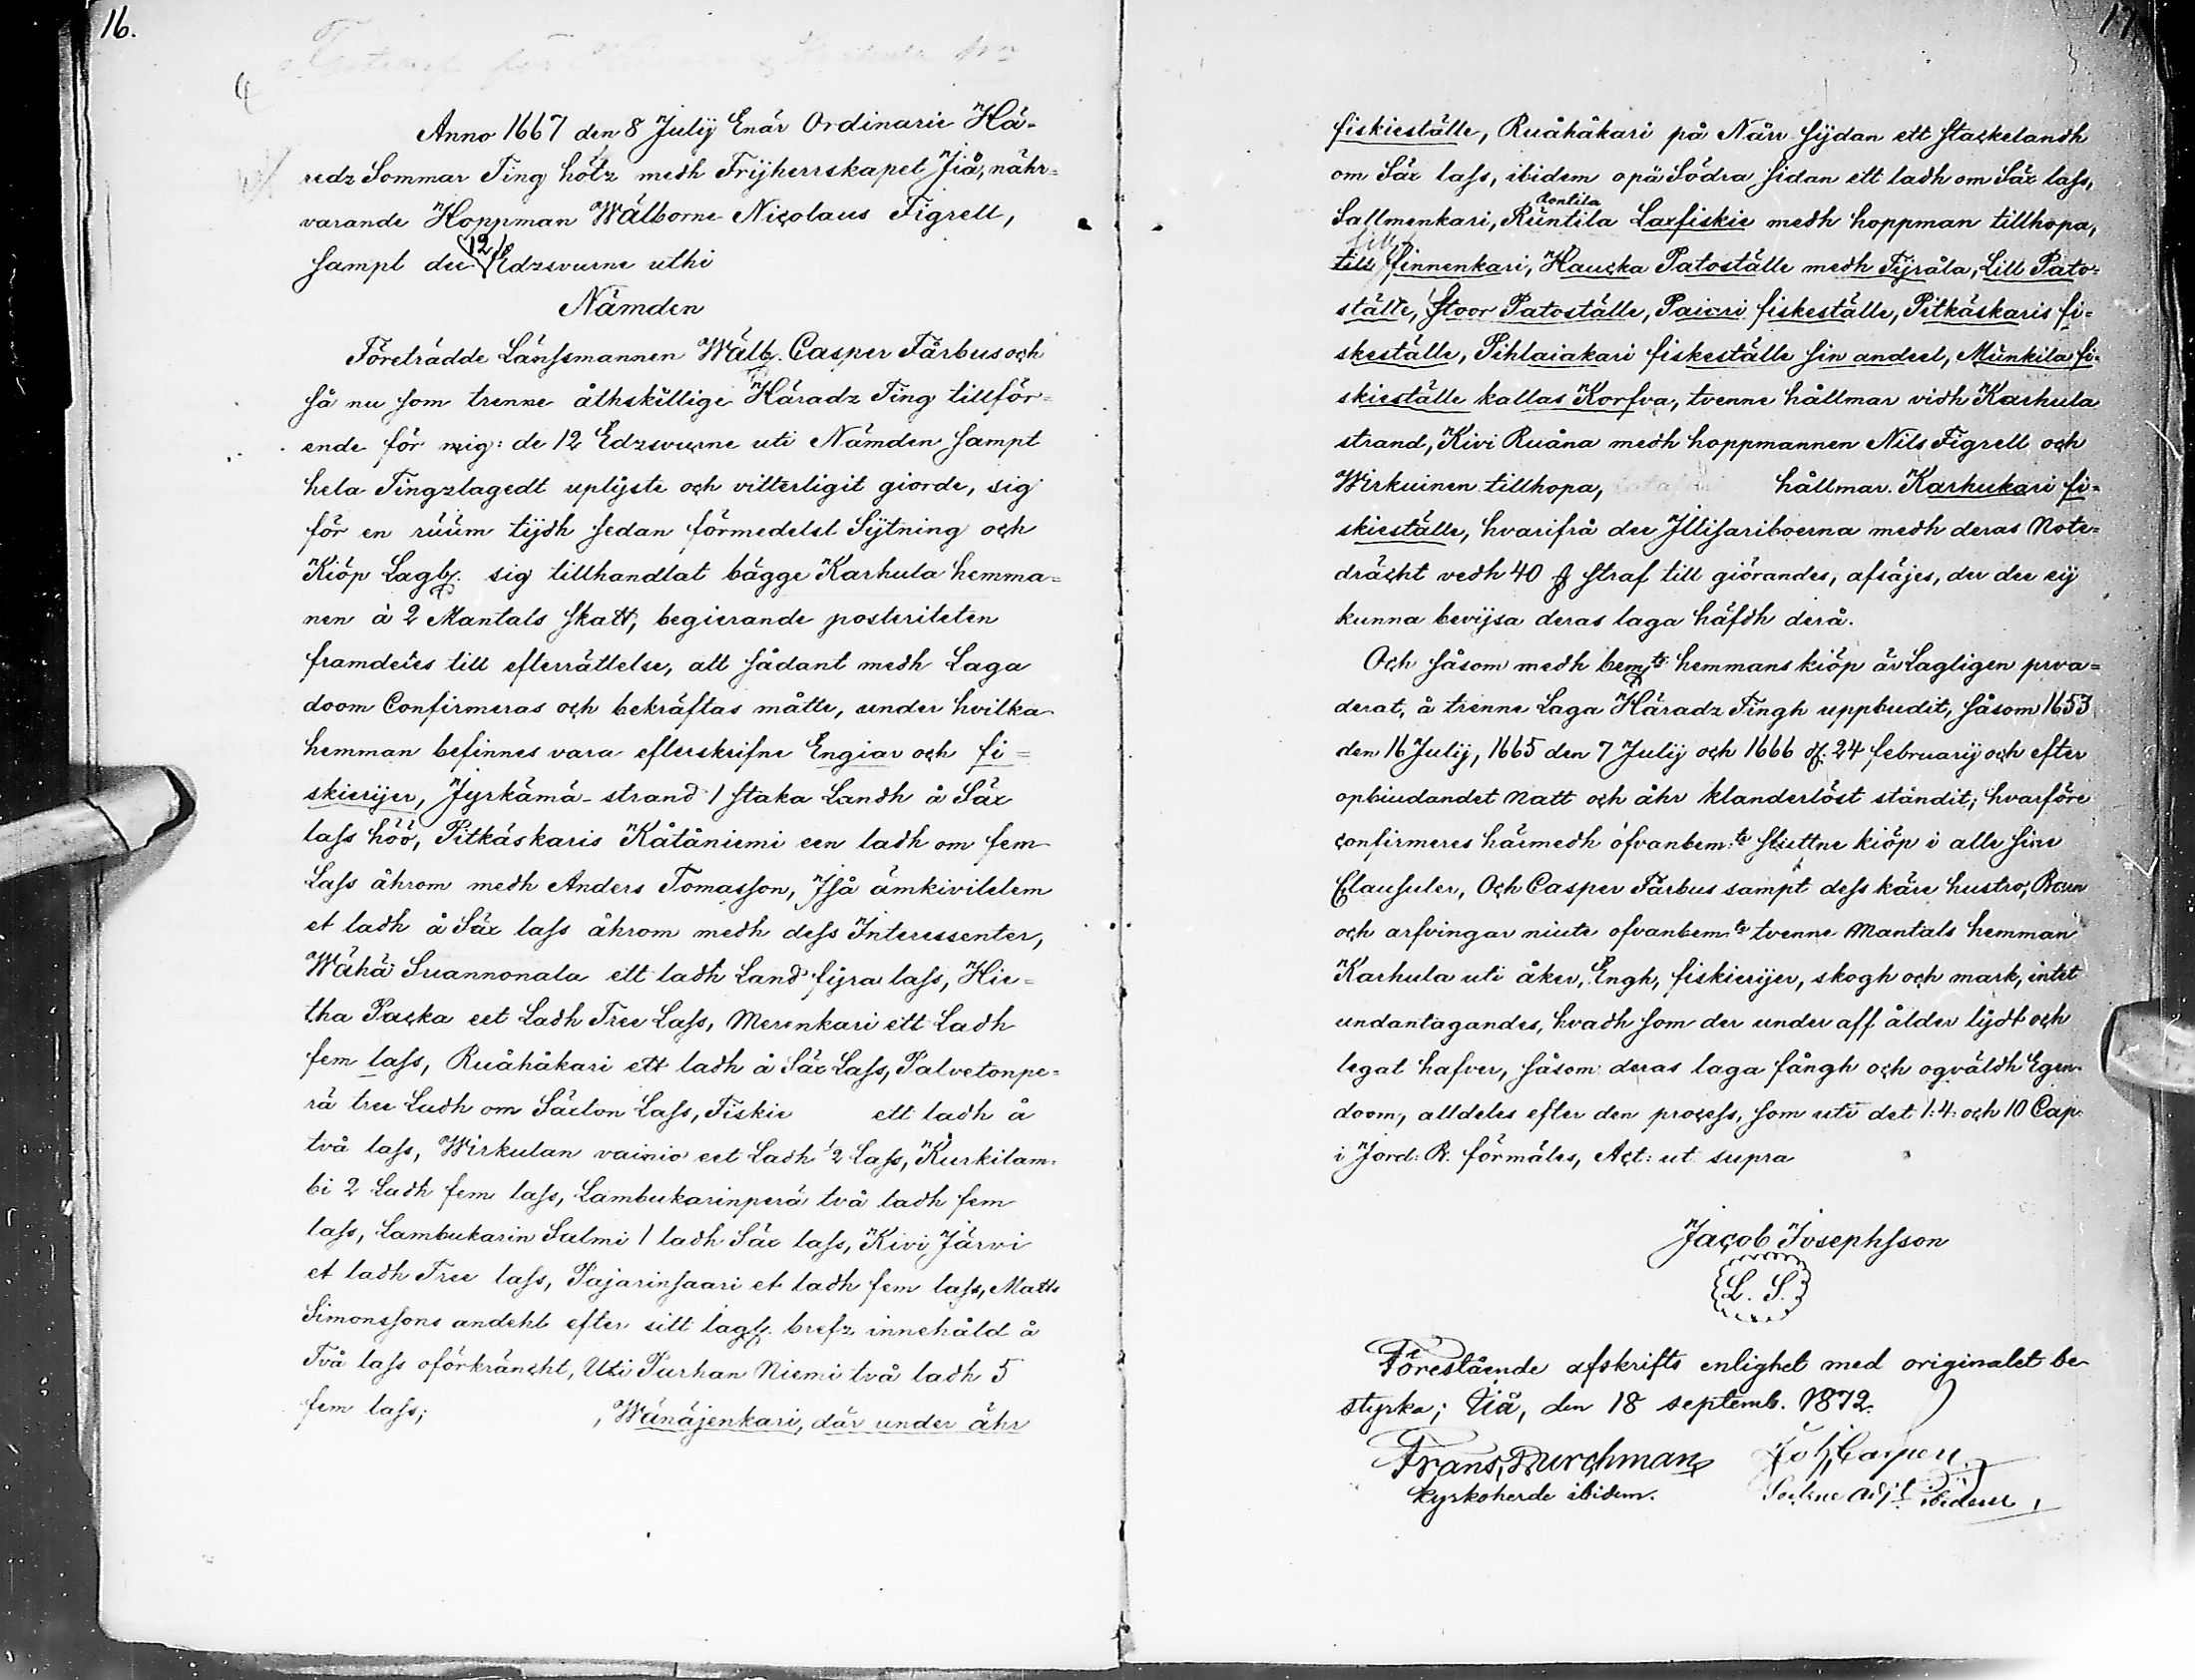 16.
Anno 1667 den 8 Julij Enär Ordinarie Hä-
redz Sommar Ting hölz medh Frijherrskapet Jiå, nähr=
varande Hoppman Wälborne Nicolaus Figrell,
sampt dee 12 Edzwurne uthi
Nämden
Företrädde Länssmannen Wälb. Casper Fårbus och
så nu som trenne åthskillige Häradz Ting tillför=
ende för mig: de 12 Edzwurne uti Nämden sampt
hela Tingzlagedt uplijste och vitterligit giorde, sig
för en rüüm tijdh sedan förmedelst Sijtning och
Kiöp Lagl. sig tillhandlat bägge Karhula hemma=
nen à 2 Mantals skatt, begierande posteriteten
framdeles till efterrättelse, att sådant medh Laga
doom Confirmeras och bekräftas måtte, under hvilka
hemman befinnes vara efterskrifne Engiar och fi=
skierijer, Jyrkämä-strand 1 staka Landh å Säx
lass höö, Pitkäskaris Kåtåniemi een ladh om fem
Lass åhrom medh Anders Tomasson, Iså ämkivilelem
et ladh å Säx lass åhrom medh dess Interessenter,
Wähä Suannonala ett ladh Land fijra lass, Hie=
tha Packa eet Ladh Tree Lass, Merenkari ett Ladh
fem lass, Ruåhåkari ett ladh å Säx Lass, Palvetonpe=
rä tree Ludh om Säxton Lass, Fiskie ett ladh å
två lass, Wirkulan vainio eet Ladh ½ Lass, Kurkilam=
bi 2 Ladh fem lass, Lambukarinperä två ladh fem
lass, Lambukarin Salmi 1 ladh Säx lass, Kivi Järvi
et ladh Tree lass, Pajarinsaari et ladh fem lass, Matts
Simonssons andehl efter sitt lagl. brefz innehåld å
Två lass oförkräncht, Uti Purhan Niemi två ladh 5
fem lass; , Wänäjenkari, där under åhr
17.
fiskieställe, Ruåhåkari på Nårr sijdan ett stackelandh
om Säx lass, ibidem opä Södra sidan ett ladh om Säx lass,
Sallmenkari, Rüntila Laxfiskie medh hoppman tillhopa,
till finnenkari, Haucka Patoställe medh Tijråla, Lill Pato=
ställe, Stoor Patoställe, Paicri fiskeställe, Pitkäskaris fi=
skeställe, Pihlaiakari fiskeställe sin andeel, Münkila fi=
skieställe kallas Korfva, tvenne hållmar vidh Karhula
strand, Kivi Ruåna medh hoppmannen Nils Figrell och
Wirkuinen tillhopa, hållmar. Karhukari fi=
skieställe, hvarifrå dee Jllisariboerna medh deras Note=
dräckt vedh 40 straf till giörandes, afsäjes, der dee eij
kunna bevijsa deras laga häfdh derå.
Och såsom medh bem:te hemmans kiöp är Lagligen prva=
derat, å trenne Laga Häradz Tingh uppbudit, såsom 1653
den 16 Julij, 1665 den 7 Julij och 1666 d. 24 februarij och efter
opbiudandet natt och åhr klanderlöst ståndit; hvarföre
confirmeres härmedh ofvanbem:te sluttne kiöp i alle sine
Clausuler, Och Casper Fårbus sampt dess käre hustro, Barn
och arfvingar niute ofvanbem:te tvenne Mantals hemman
Karhula uti åker, Engh, fiskierijer, skogh och mark, intet
undantagandes, hvadh som der under aff ålder lijdt och
legat hafver, såsom deras laga fångh och ogväldh Egen=
doom, alldeles efter den process, som uti det 1:4: och 10 Cap:
i Jord: B. förmäles, Act: ut supra
Jacob Josephsson
L. S.
Förestående afskrifts enlighet med originalet be-
styrka; Uiå, den 18 septemb. 1872.
Frans Durchman
kyrkoherde ibidem.
ibidem